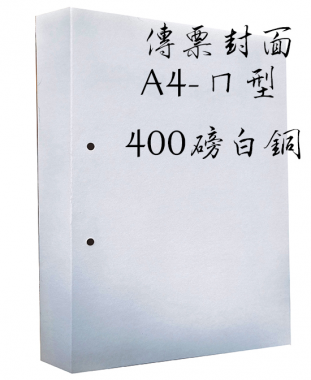 傳票封面
A4-ㄇ型
400磅白銅